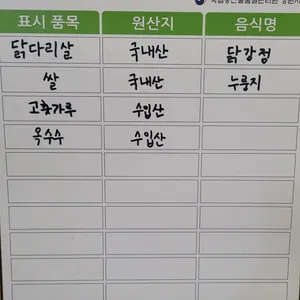 국립농산물품질관리원
표시 품목 원산지 음식명
닭다리살 국내산 닭강정
쌀 국내산 누룽지
고춧가루 수입산
옥수수 수입산